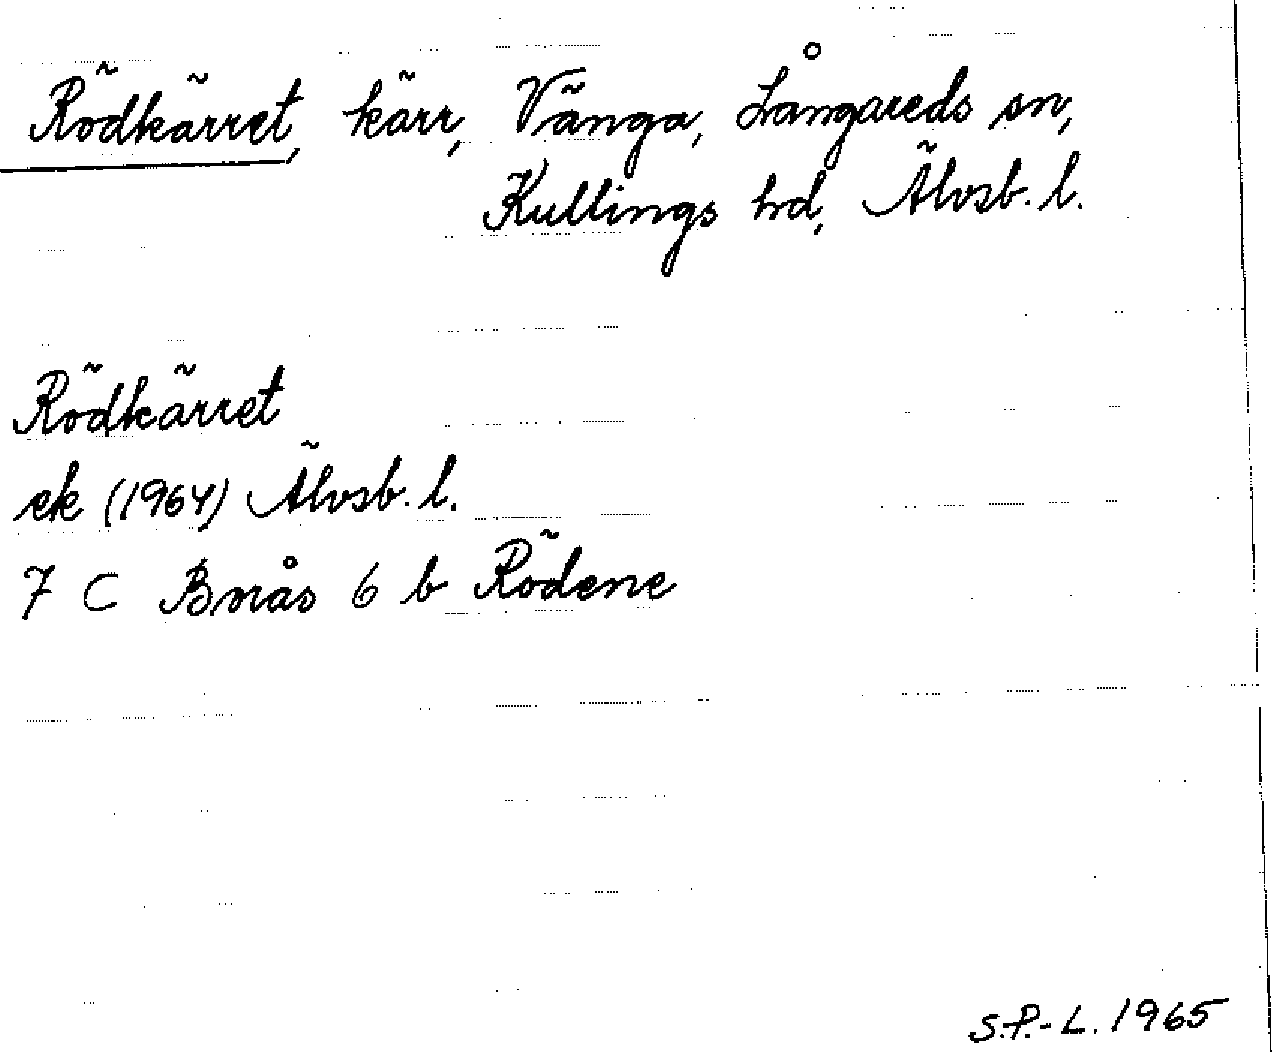 Rödkärret, kärr, Vänga, Långareds sn,
Kullings hd, Älvsb. l.
Rödkärret
ek (1964) Älvsb. l.
7 C Borås 6 b Rödene
S.P.-L. 1965